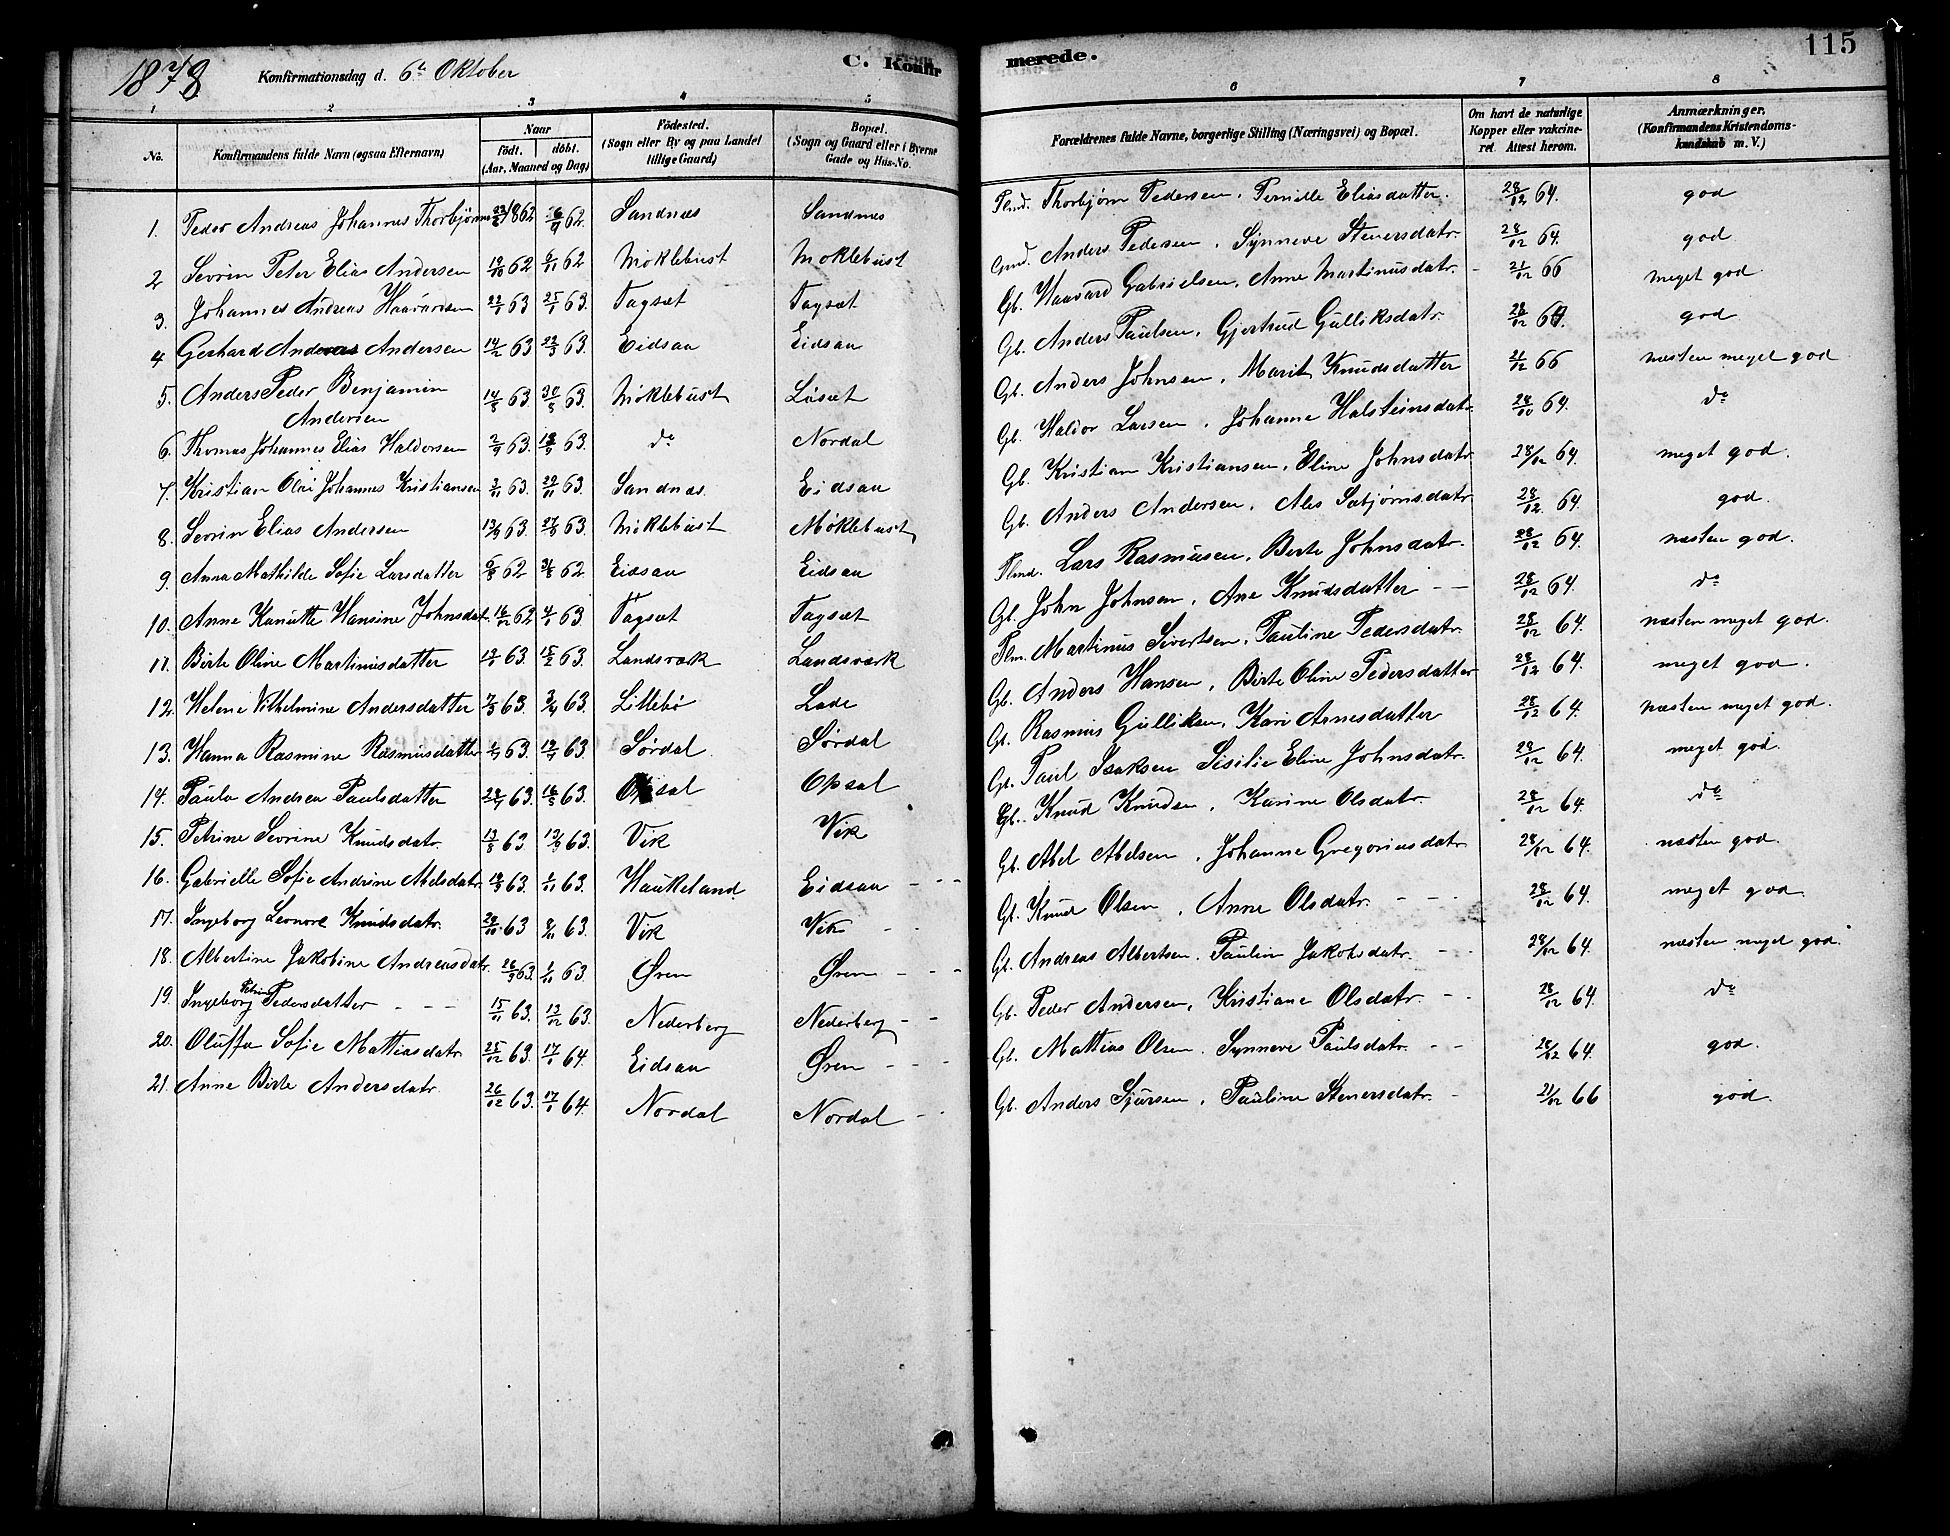 115
1878 Konfirmationsdag d. 6te Oktober C. Konfirmerede.
1 2 3 4 5 6 7 8
No. Konfirmandens fulde Navn (ogsaa Efternavn) Naar født. døbt. (Aar, Maaned og Dag) Fødested. (Sogn eller By og paa Landet tillige Gaard) Bopæl. (Sogn og Gaard eller i Byerne Gade og Hus-No. Forældrenes fulde Navne, borgerlige Stilling (Næringsvei) og Bopæl. Om havt de naturlige Kopper eller vakcineret. Attest herom. Anmærkninger. (Konfirmandens Kristendomskundskab m. V.)
1. Peder Andreas Johannes Thorbjørns 1862 62 Sandnæs Sandnæs Plmd. Thorbjørn Pedersen, Pernille Eliasdatter. 28/12 64. god
2 Sevrin Peter Elias Andersen 19/10 62 9/11 62 Møklebust Moklebust Gmd. Anders Pedersen, Synneve Stenersdatr. 28/12 64. god
3. Johannes Andreas Haavardsen 22/1 63 25/1 63. Tagsæt Tagsæt Gb. Haavard Gabrielsen, Anne Martinusdatr. - 21/12 66 meget god
4 Gerhard Andersen 14/2 63 22/3 63. Eidsaa Eidsaa Gb. Anders Paulsen, Gjertrud Gulliksdatr. 28/12 64. god
5. Anders Peder Benjamin Andersen 14/8 63. 30/8 63. Møklebust Løsæt Gb. Anders Johnsen, Marit Knudsdatter 21/12 66 næsten meget god
6. Thomas Johannes Elias Haldorsen 2/9 63. 13/9 63. do Nordal Gb. Haldor Larsen, Johanne Halsteinsdatr. 28/10 64. do
7. Kristian Olai Johannes Kristiansen 3/11 63. 29/11 63. Sandnæs. Eidsaa Gb. Kristian Kristiansen, Eline Johnsdatr 28/12 64. meget god.
8. Sevrin Elias Andersen 13/9 63. 27/9 63. Møklebust Møklebust Gb. Anders Andersen, Ales Sæbjørnsdatr 28/12 64. god.
9. Anna Mathilde Sofie Larsdatter 6/8 62 31/8 62 Eidsaa Eidsaa Plmd. Lars Rasmusen, Berte Johnsdatr. 28/12 64. næsten god.
10. Anne Kanutte Hansine Johnsdat. 16/12 62 4/1 63 Tagsæt Tagsæt Gb. John Johnsen, Ane Knudsdatter - - 28/12 64. do
11. Birte Oline Martinusdatter 13/1 63. 15/2 63. Landsværk Landsværk Plm. Martinus Sivertsen, Pauline Pedersdatr. 28/12 64. næsten meget god.
12. Helene Vilhelmine Andersdatter 7/3 63. 3/4 63. Lillebø Lade Gb. Anders Hansen, Birte Oline Pedersdatter 28/12 64. meget god.
13. Hanna Rasmine Rasmusdatter 63. 19/4 63. Sørdal Sørdal Gb. Rasmus Gulliksen, Kari Arnesdatter 28/12 64. næsten meget god.
14. Paula Andrea Paulsdatter 63. 63. Opsal Opsal Gb. Paul Isaksen Sisilie Eline Johnsdatr. 28/12 64. meget god.
15. Petrine Sevrine Knudsdatr. 13/8 63. 13/9 63. Vik Vik Gb. Knud Knudsen, Karine Olsdatr. 28/12 64. do
16. Gabrielle Sofie Andrine Abelsdatr. 63. 1/11 63. Haukeland. Eidsaa - - - Gb. Abel Abelsen, Johanne Gregoriusdatr 28/12 64. næsten god.
17. Ingeborg Leonore Knudsdatr. 20/10 63 8/11 63. Vik Vik - - Gb. Knud Olsen, Anne Olsdatr. - - - 28/12 64. meget god.
18. Albertine Jakobine Andreasdatr. 26/9 63. 1/11 63. Øren Øren - - - Gb. Andreas Albertsen, Paulin Jakobsdatr. - - 28/12 64. næsten meget god.
19. Ingeborg Petrine Pedersdatter - - - 15/11 63. 13/12 63. Nederberg Nederberg - - Gb. Peder Andersen, Kristiane Olsdatr. - - 28/12 64. do
20. Oluffa Sofie Mattiasdatr 25/12 63. 17/1 64. Eidsaa Øren - - Gb. Mattias Olsen, Synneve Paulsdatr. - - 28/12 64. god.
21. Anne Birte Andersdatr. 26/12 63. 17/1 64. Nordal Nordal - - Gb. Anders Sjursen, Pauline Stenersdatr. - 21/12 66 god.